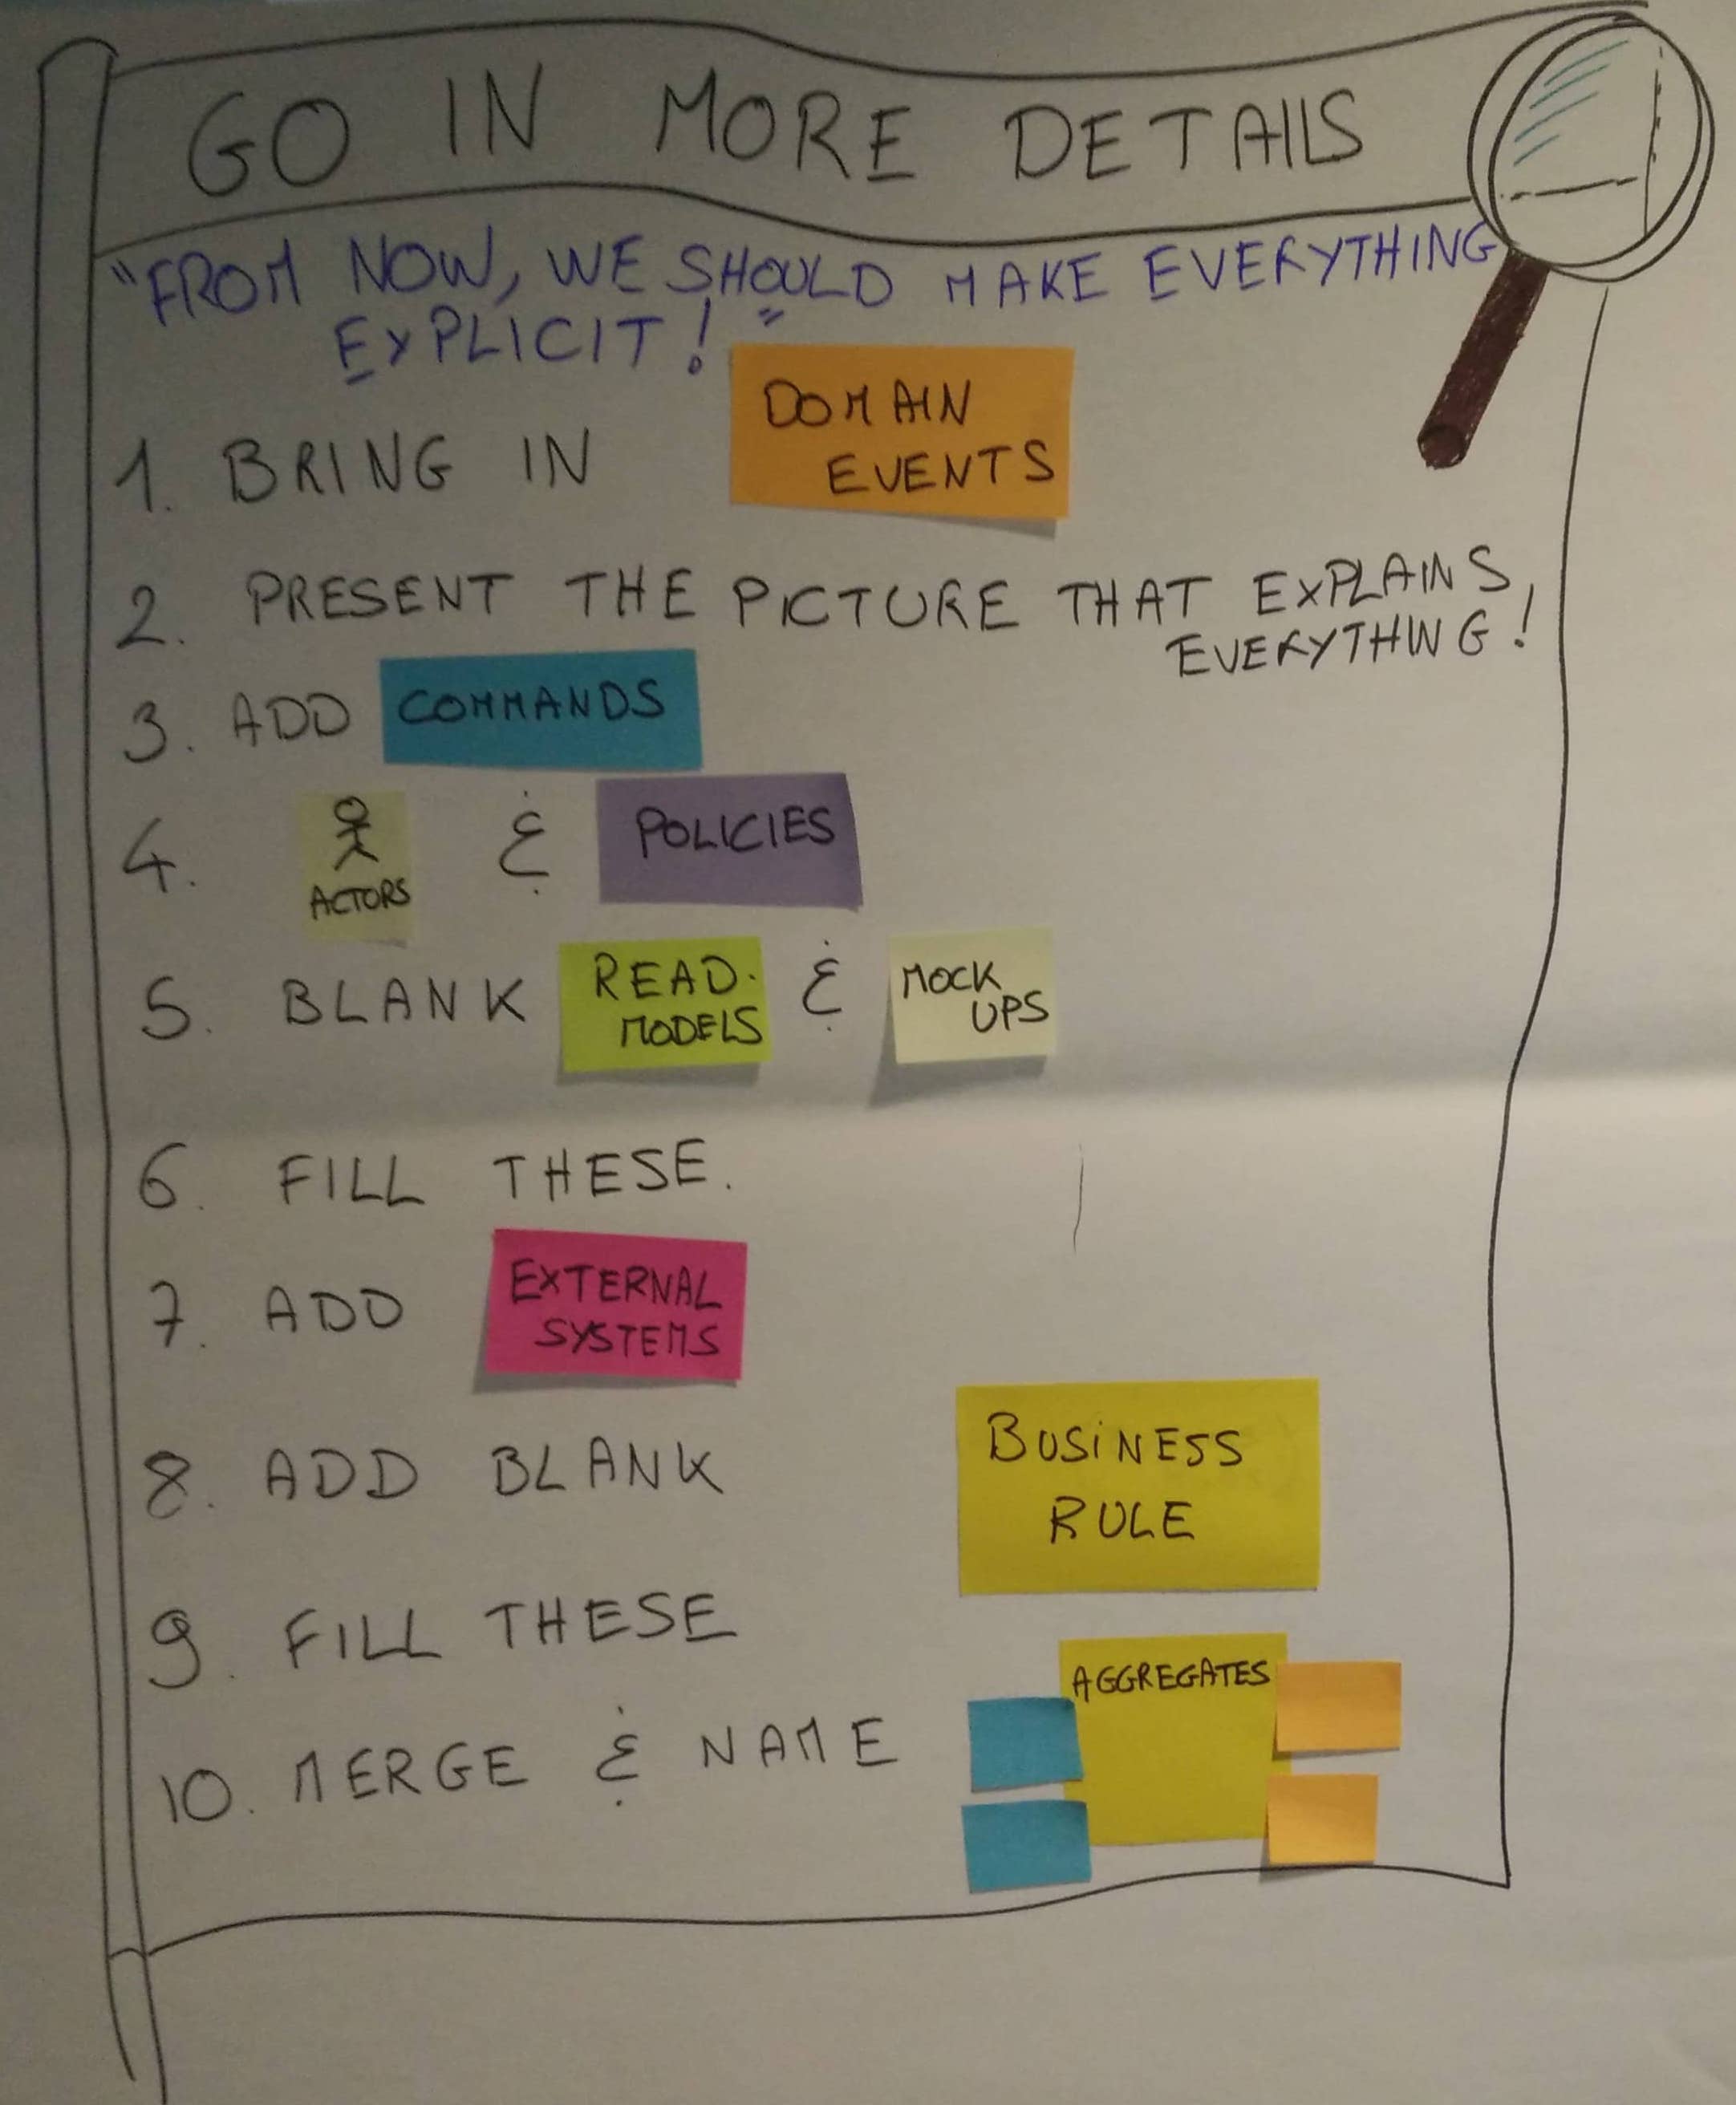 GO IN MORE DETAILS
"FROM NOW, WE SHOULD MAKE EVERYTHING
EXPLICIT!"
1. BRING IN DOMAIN
EVENTS
2. PRESENT THE PICTURE THAT EXPLAINS
EVERYTHING!
3. ADD COMMANDS
4. ACTORS & POLICIES
5. BLANK READ.
MODELS & MOCK
UPS
6. FILL THESE.
7. ADD EXTERNAL
SYSTEMS
8. ADD BLANK BUSINESS
RULE
9. FILL THESE
10. MERGE & NAME AGGREGATES